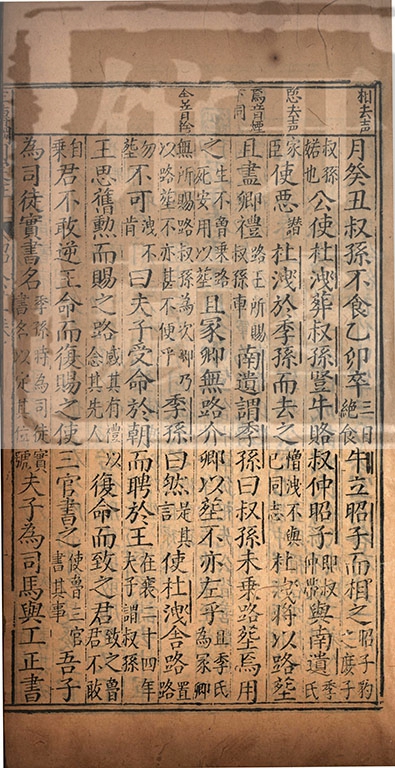 相去声
惡去声
焉音煙下同
月癸丑叔孫不食乙卯卒三日絕食牛立昭子而相之昭子豹之庶子
叔孫婼也公使杜洩葬叔孫豎牛賂叔仲昭子即叔仲帶與南遺季氏
家臣使惡譖杜洩於季孫而去之憎洩不與己同志杜洩將以路葬
且盡卿禮路王所賜叔孫車南遺謂季孫曰叔孫未乘路葬焉用
之生不曾乘路死安用以葬且冢卿無路介卿以葬不亦左乎且季氏為冢卿
無所賜路叔孫為次卿乃以路葬不亦甚不便乎季孫曰然是其言使杜洩舍路置路
勿葬不可洩不肯曰夫子受命於朝而聘於王在襄二十四年夫子謂叔孫
王思舊勳而賜之路感其有禮以念其先人復命而致之君致之魯君不敢
自乘君不敢逆王命而復賜之使三官書之使魯三官書其事吾子
為司徒實書名季孫時為司徒實書名以定其位號夫子為司馬與工正書